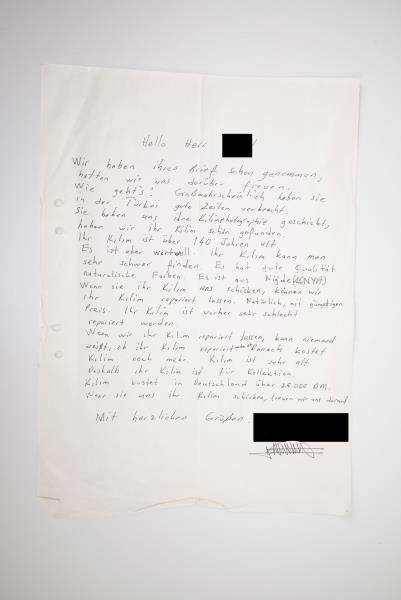 Hello Herr
Wir haben ihren Brief schon genommen,
hatten wir uns darüber freuen.
Wie geht's! Großwahrscheinlich haben sie
in der Türkei gute Zeiten verbracht.
Sie haben uns ihre Kilimphotographie geschickt,
haben wir ihr Kilim schön gefunden.
Ihr Kilim ist über 140 Jahren alt.
Es ist aber wertvoll. Ihr Kilim kann man
sehr schwer finden. Es hat gute Qualität
naturalische Farben. Es ist aus Niğde(KONYA)
Wenn sie ihr Kilim uns schicken, können wir
ihr Kilim repariert lassen. Natürlich, mit günstigen
Preis. Ihr Kilim ist vorher sehr schlecht
repariert worden
Wenn wir ihr Kilim repariert lassen, kann niemand
weißt, ob ihr Kilim repariert Danach kostet
Kilim noch mehr. Kilim ist sehr alt.
Deshalb ihr Kilim ist für Kollektion.
Kilim kostet in Deutschland über 25.000 DM.
Wenn sie uns ihr Kilim schicken, freuen wir uns darauf
Mit herzlichen Grüßen